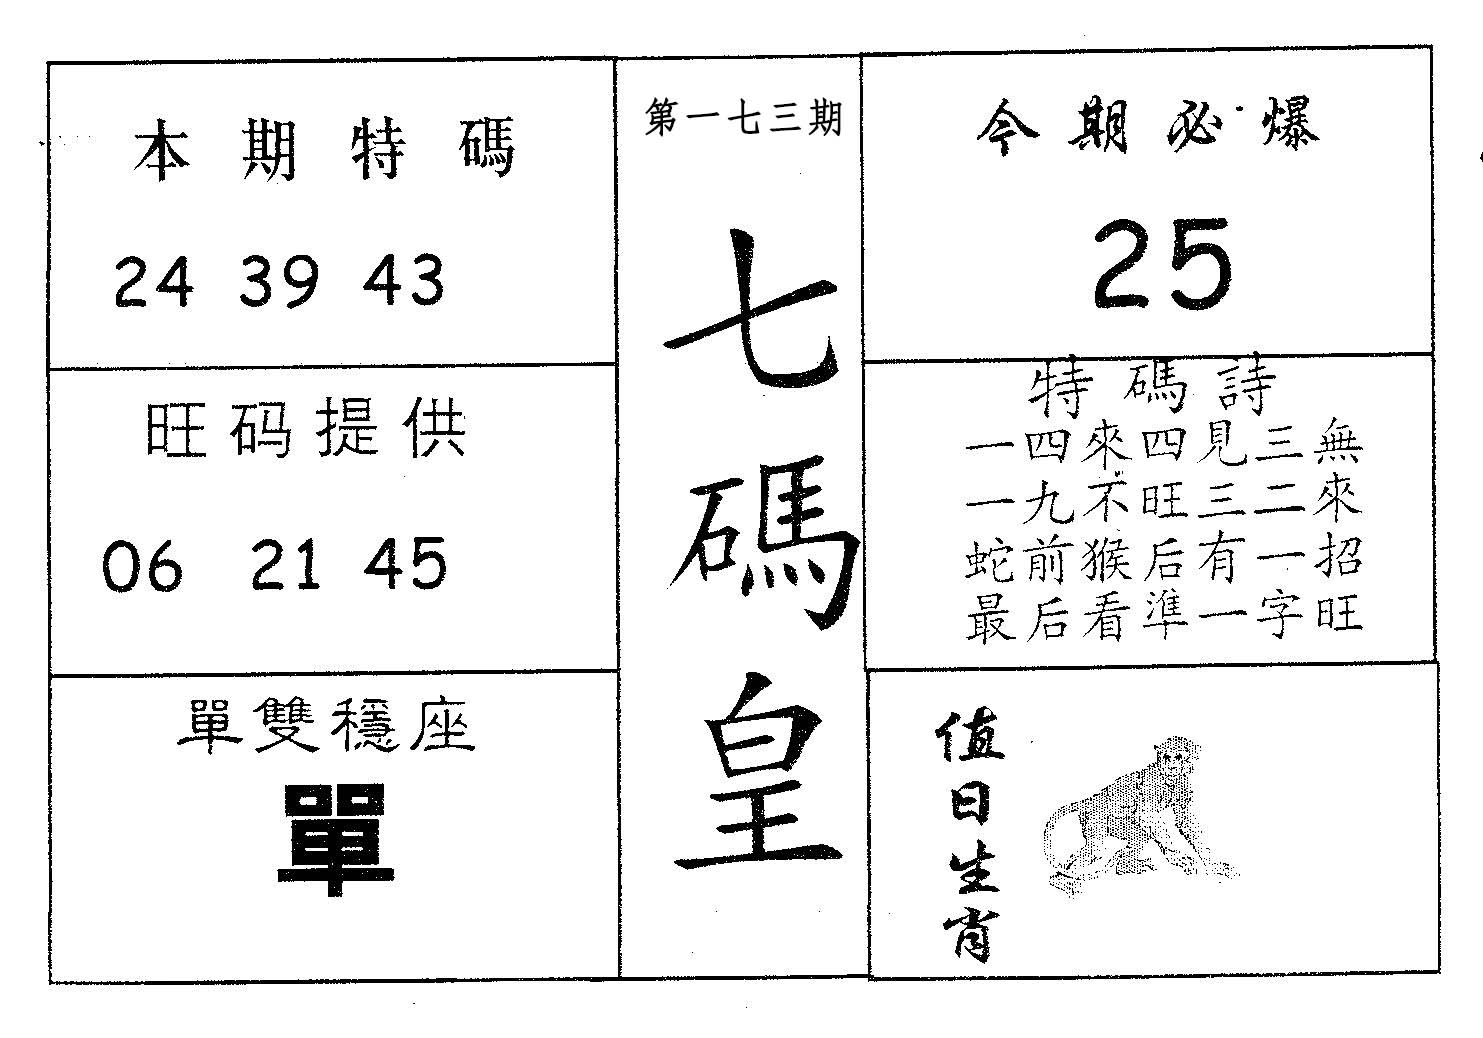 本期特碼
24 39 43
旺码提供
06 21 45
單雙穩座
單
第一七三期
七
碼
皇
今期必爆
25
特碼詩
一四來四見三無
一九不旺三二來
蛇前猴后有一招
最后看準一字旺
值
日
生
肖